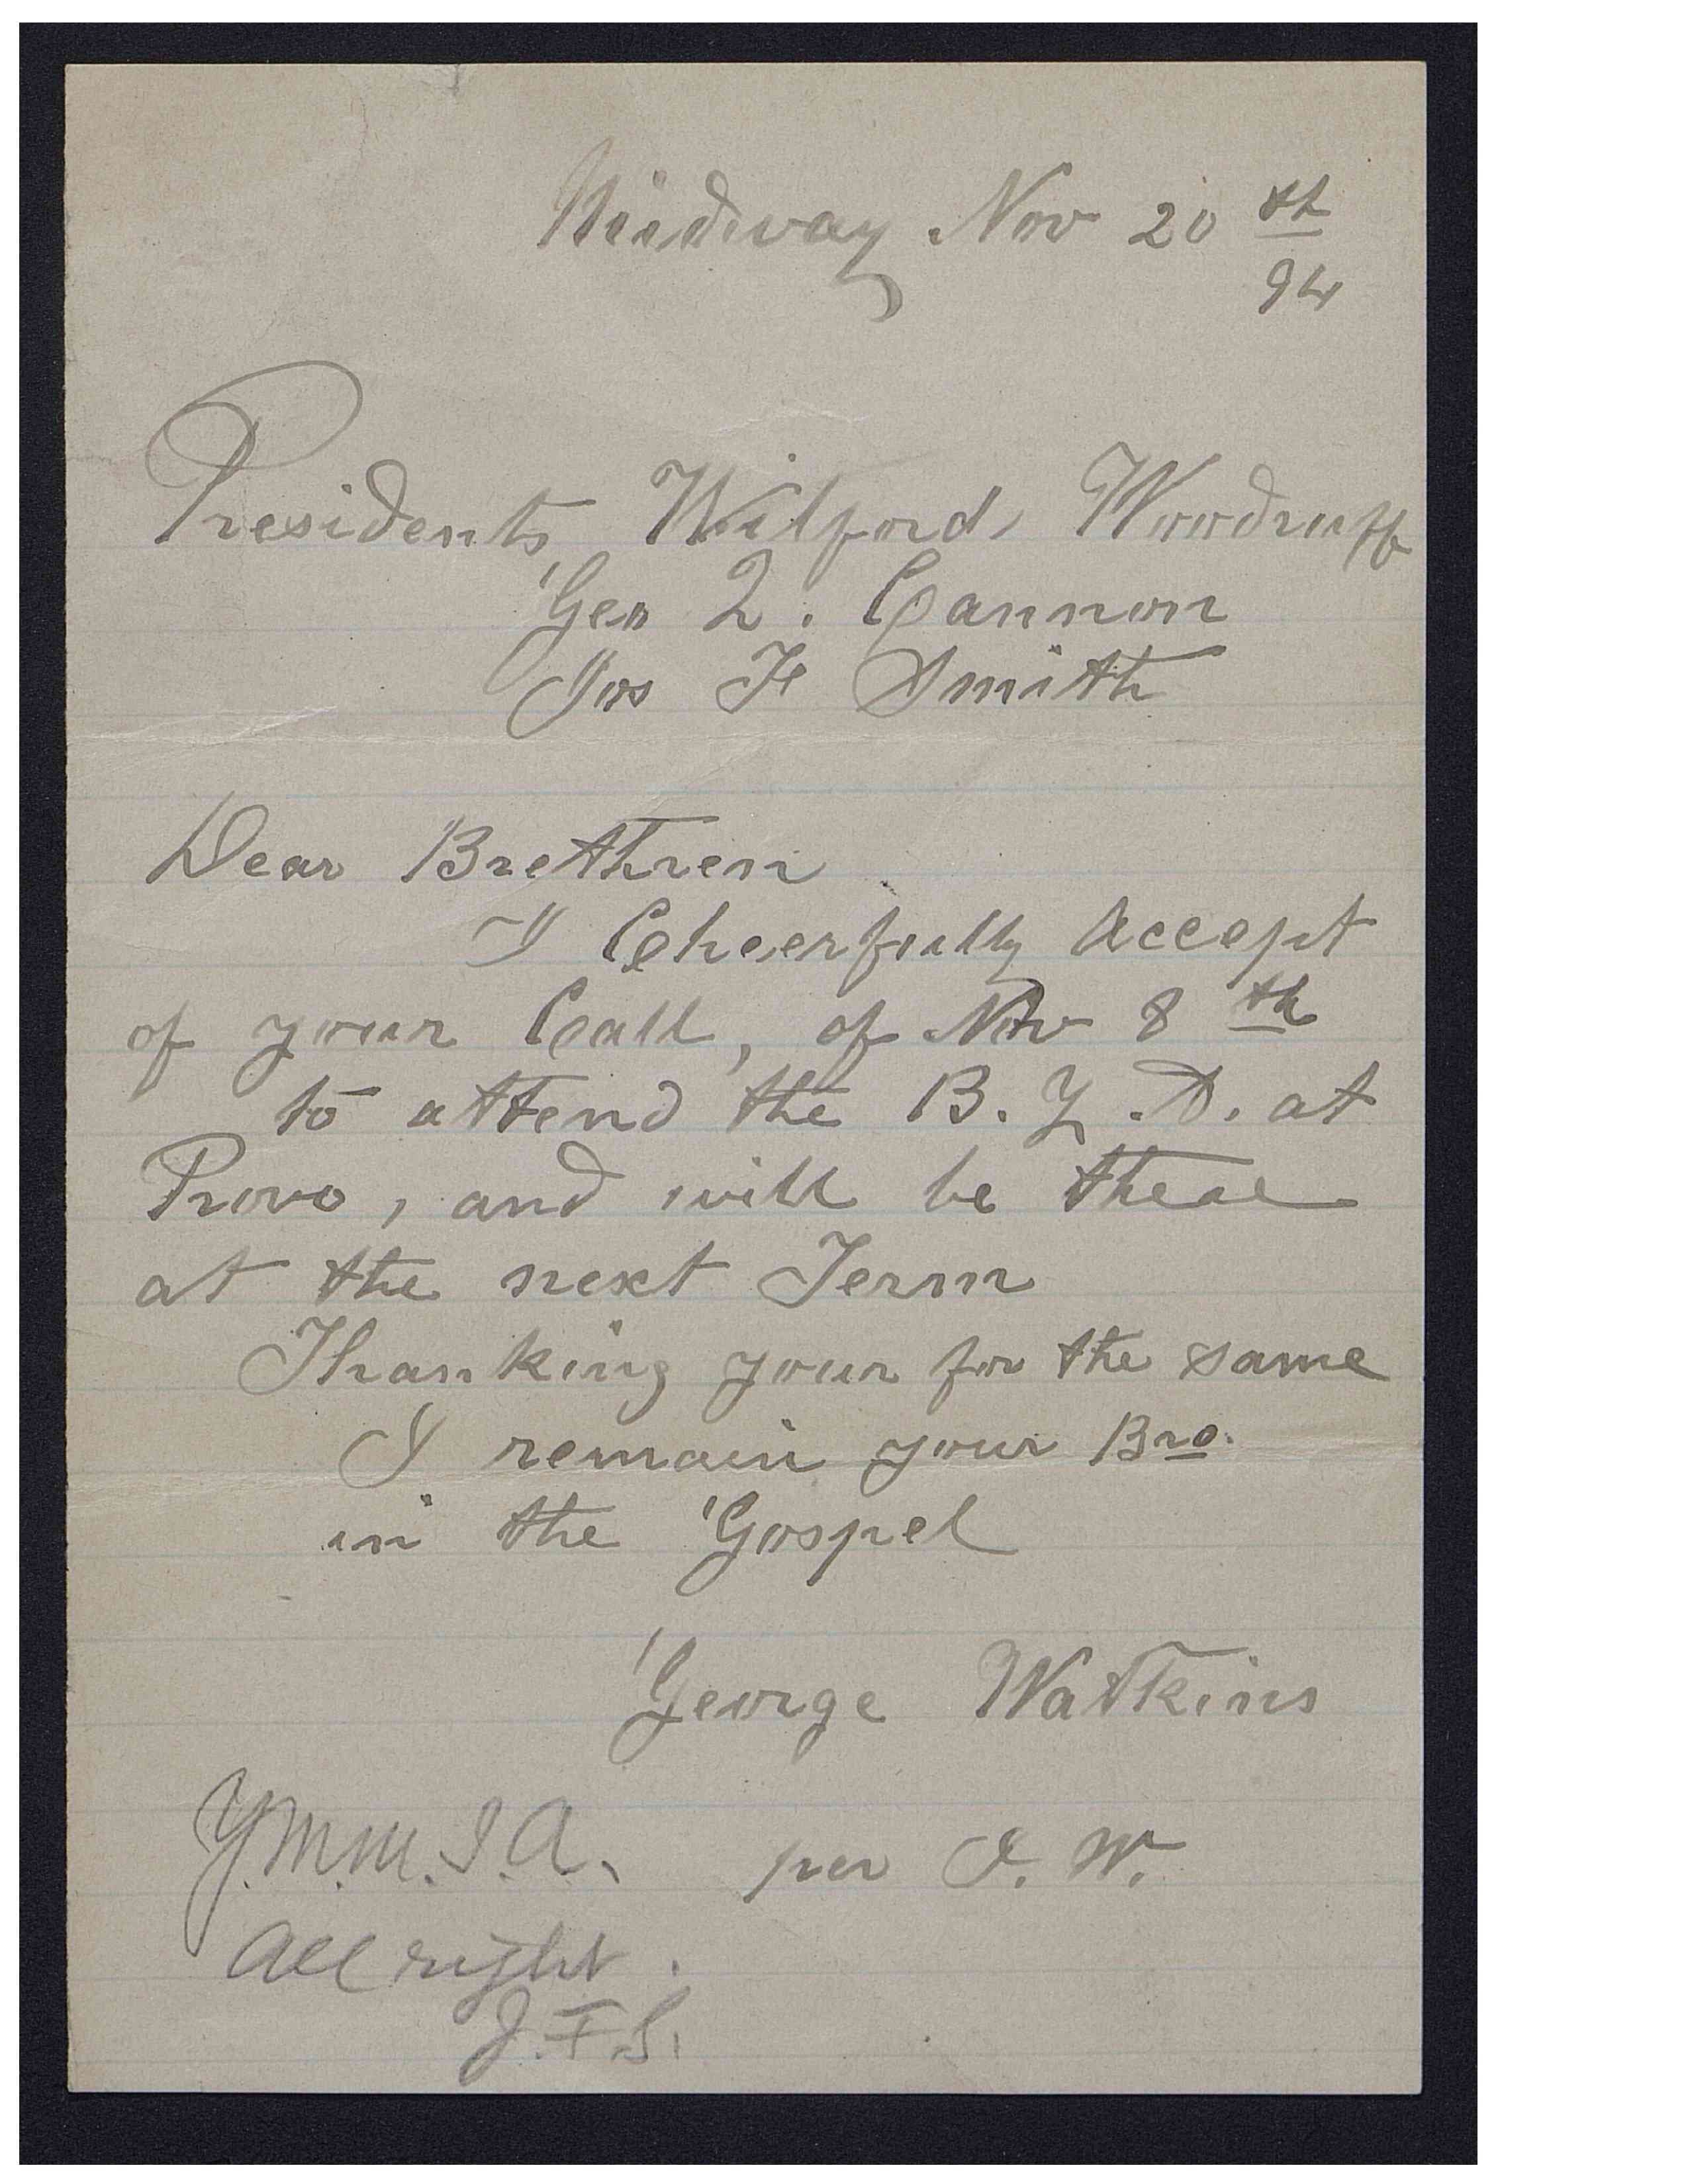 Midway Nov 20th
94
Presidents Wilford Woodruff
Geo Q. Cannon
Jos F Smith
Dear Brethren
I Cheerfully Accept
of your Call, of Nov 8th
to attend the B. Y. A. at
Provo, and will be there
at the next Term
Thanking your for the same
I remain your Bro.
in the Gospel
George Watkins
per J. W.
Y.M.M.I.A.
All right.
J.F.S.